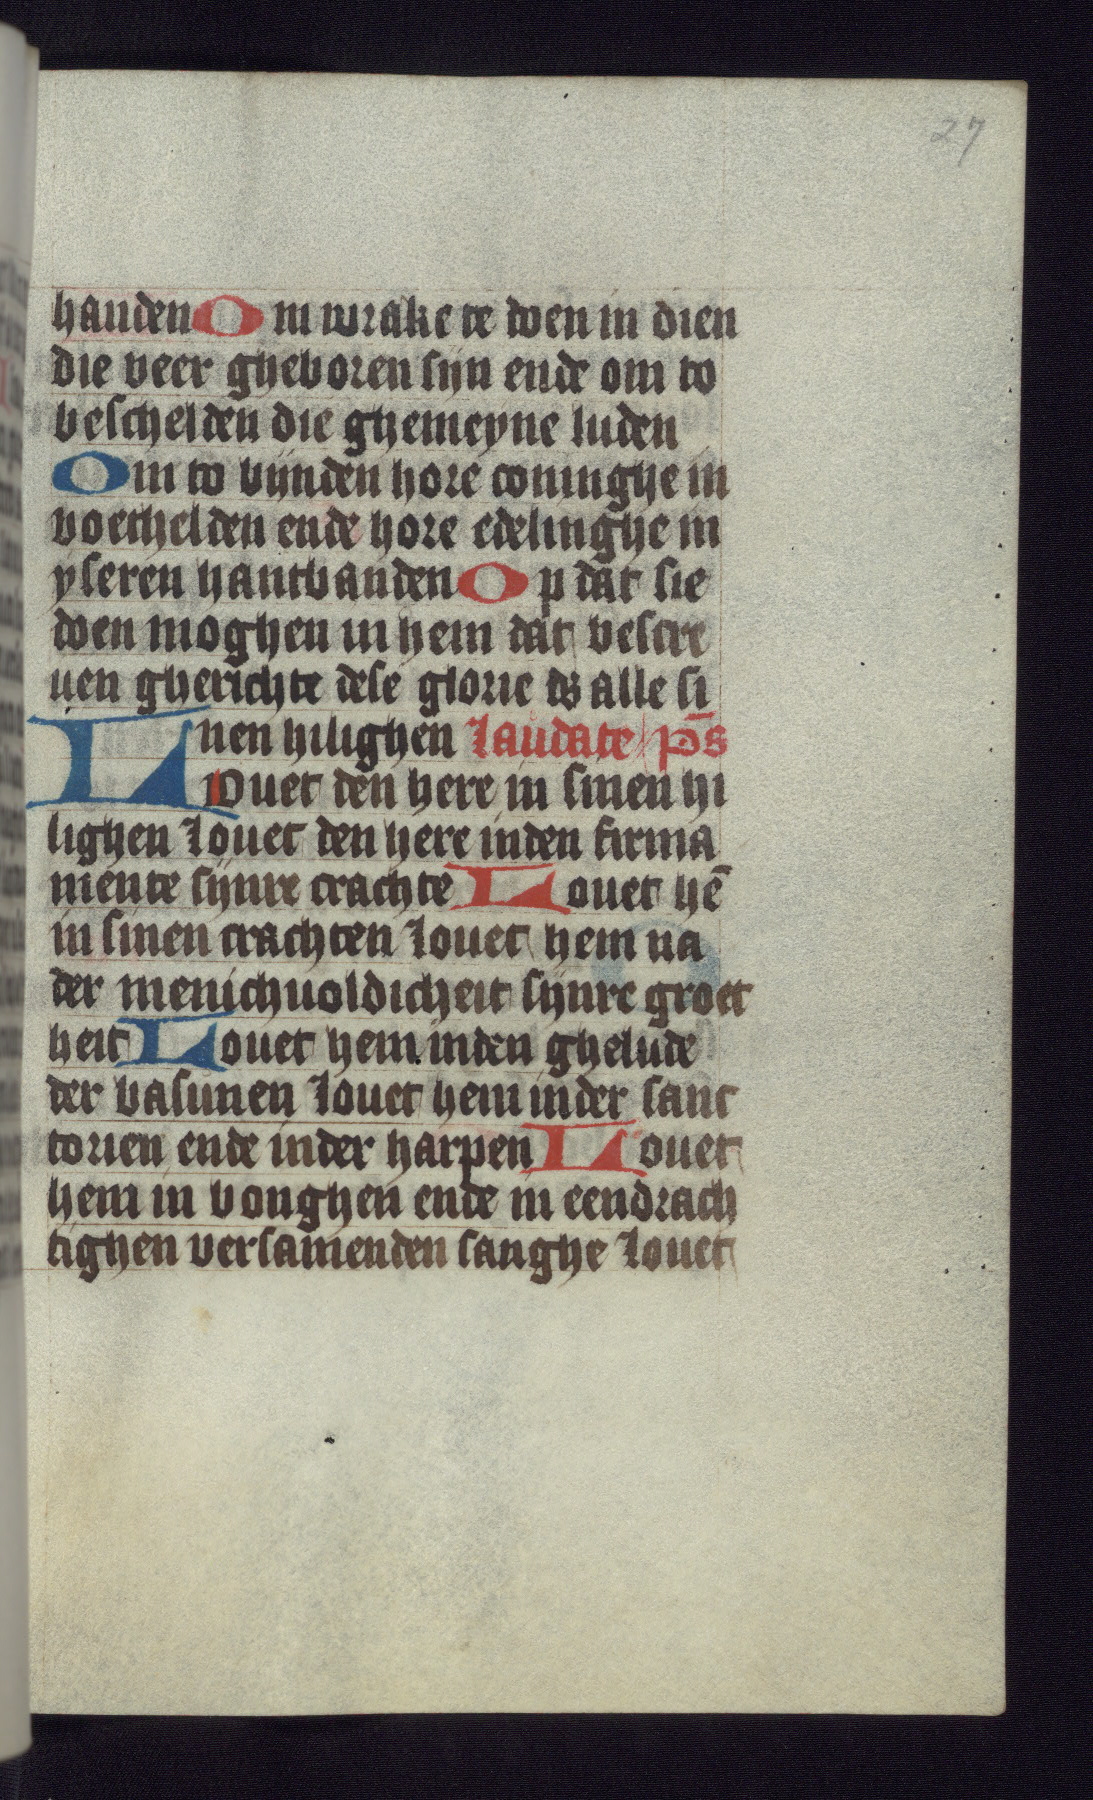 27
handen Om wrake te doen in dien
die veer gheboren sijn ende om to
beschelden die ghemeyne luden
Om to bijnden hore coninghe in
voethelden ende hore edelinghe in
yseren hantbanden Op dat sie
doen moghen in hem dat bescre
uen gherichte dese glorie is alle si
nen hilighen Laudate ps̄
Louet den here in sinen hi
lighen Louet den here inden firma
mente sijnre crachte Louet hē
in sinen crachten Louet hem na
der menichuoldicheit sijnre groet
heit Louet hem inden ghelude
der basunen Louet hem inder sauc
torien ende inder harpen Louet
hem in bonghen ende in eendrach
tighen versamenden sanghe Louet